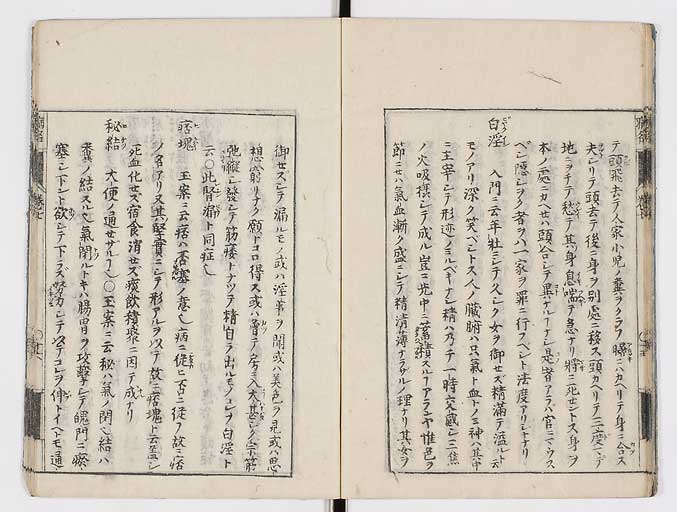 テ頭飛去テ人家小児ノ糞ヲクラフ曙ニハカヘリテ身ニ合ス
夫レリテ頭去テ後ニ身ヲ別處ニ移ス頭カヘリテ二三度マデ
地ニヲチテ愁テ其身息喘テ急ナリ將ニ死セントス身ヲ
本ノ處ニカヘセハ頭ヘ合シテ異ナルナシ是者アラバ官ニマウス
ベシ隠シヲク者ヲハ一家ヲ罪ニ行フベント法度アリシトナリ
白淫
入門ニ云年壮ニシテ久シク女ヲ御セズ精滿テ溢ルト云
モノアリ深ク笑ヘシトス人ノ臓腑ハ只氣ト血トノミ神ハ其中
ニ主宰シテ形迹ノミルベキナシ精ハ乃チ一時交感シ三焦
ノ火吸撮シテ成ル豈ニ先中ニ蓄積スルアランヤ惟色ヲ
節ニセハ氣血漸ク盛ニシテ精清薄ナラザルノ理ナリ其女ヲ
御セズシテ漏ルモノ或ハ淫事ヲ聞或ハ美色ヲ見或ハ思
想窮リナク願トコロ得ス或ハ嘗テ房ニ入大甚シク宗筋
弛縦シ發シテ筋痿トナツテ精自ラ出ルモノコレヲ白淫ト
云〇此腎漏ト同症也
痞塊
玉案ニ云痞ハ否塞ノ意也病ニ從ヒ否ニ從フ故ニ痞
ノ名アリ又其堅實ニシテ形アルヲ以テ故ニ痞塊ト云蓋シ
死血化セズ宿食消セズ痰飲精聚ニ因テ成ナリ
秘結
大便ノ通セザル也〇玉案ニ云秘ハ氣ノ閉也結ハ
糞ノ結ス也氣閉ルトキハ腸胃ヲ攻撃シテ魄門ニ瘀
塞シ下ント欲シテ下ラズ努力シテ以テコレヲ伸トイヘトモ通